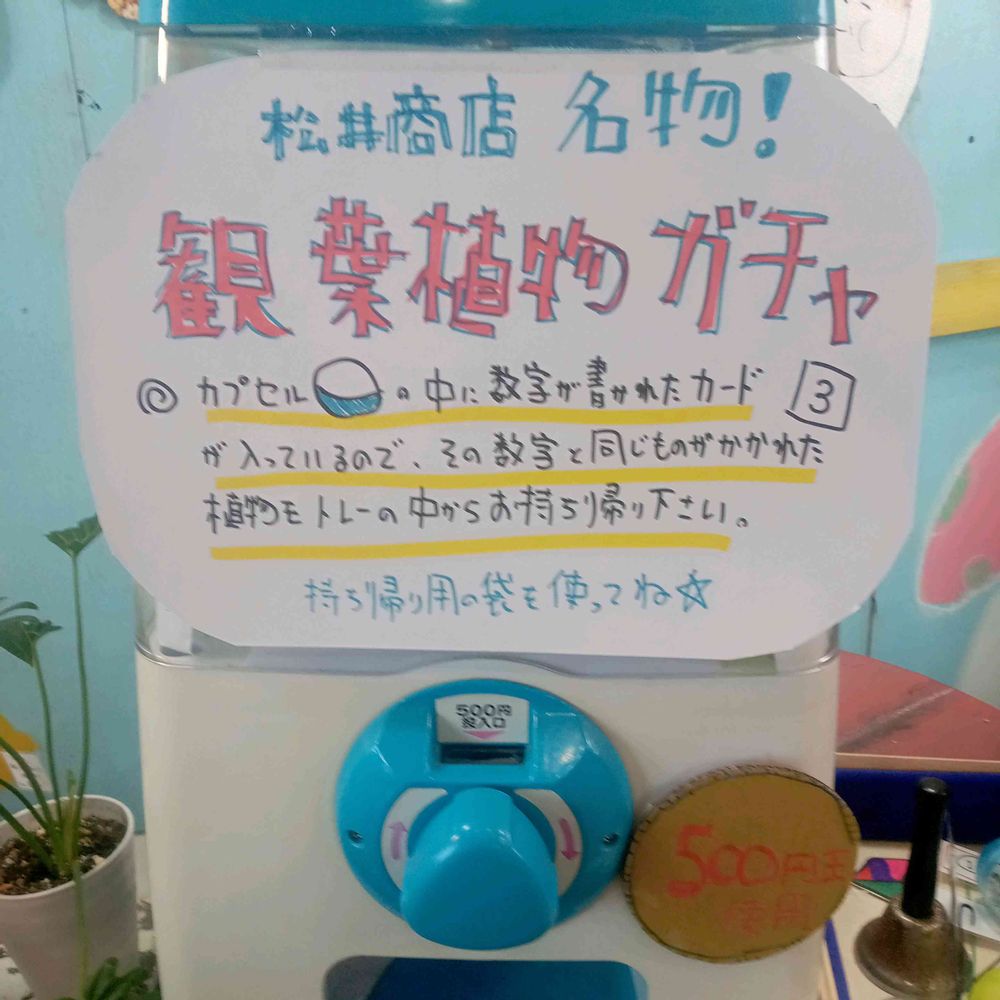 松井商店 名物!
観葉植物ガチャ
◎ カプセルの中に数字が書かれたカード 3
が入っているので、その数字と同じものがかかれた
植物をトレーの中からお持ち帰り下さい。
持ち帰り用の袋を使ってね☆
500円
投入口
500円玉
使用